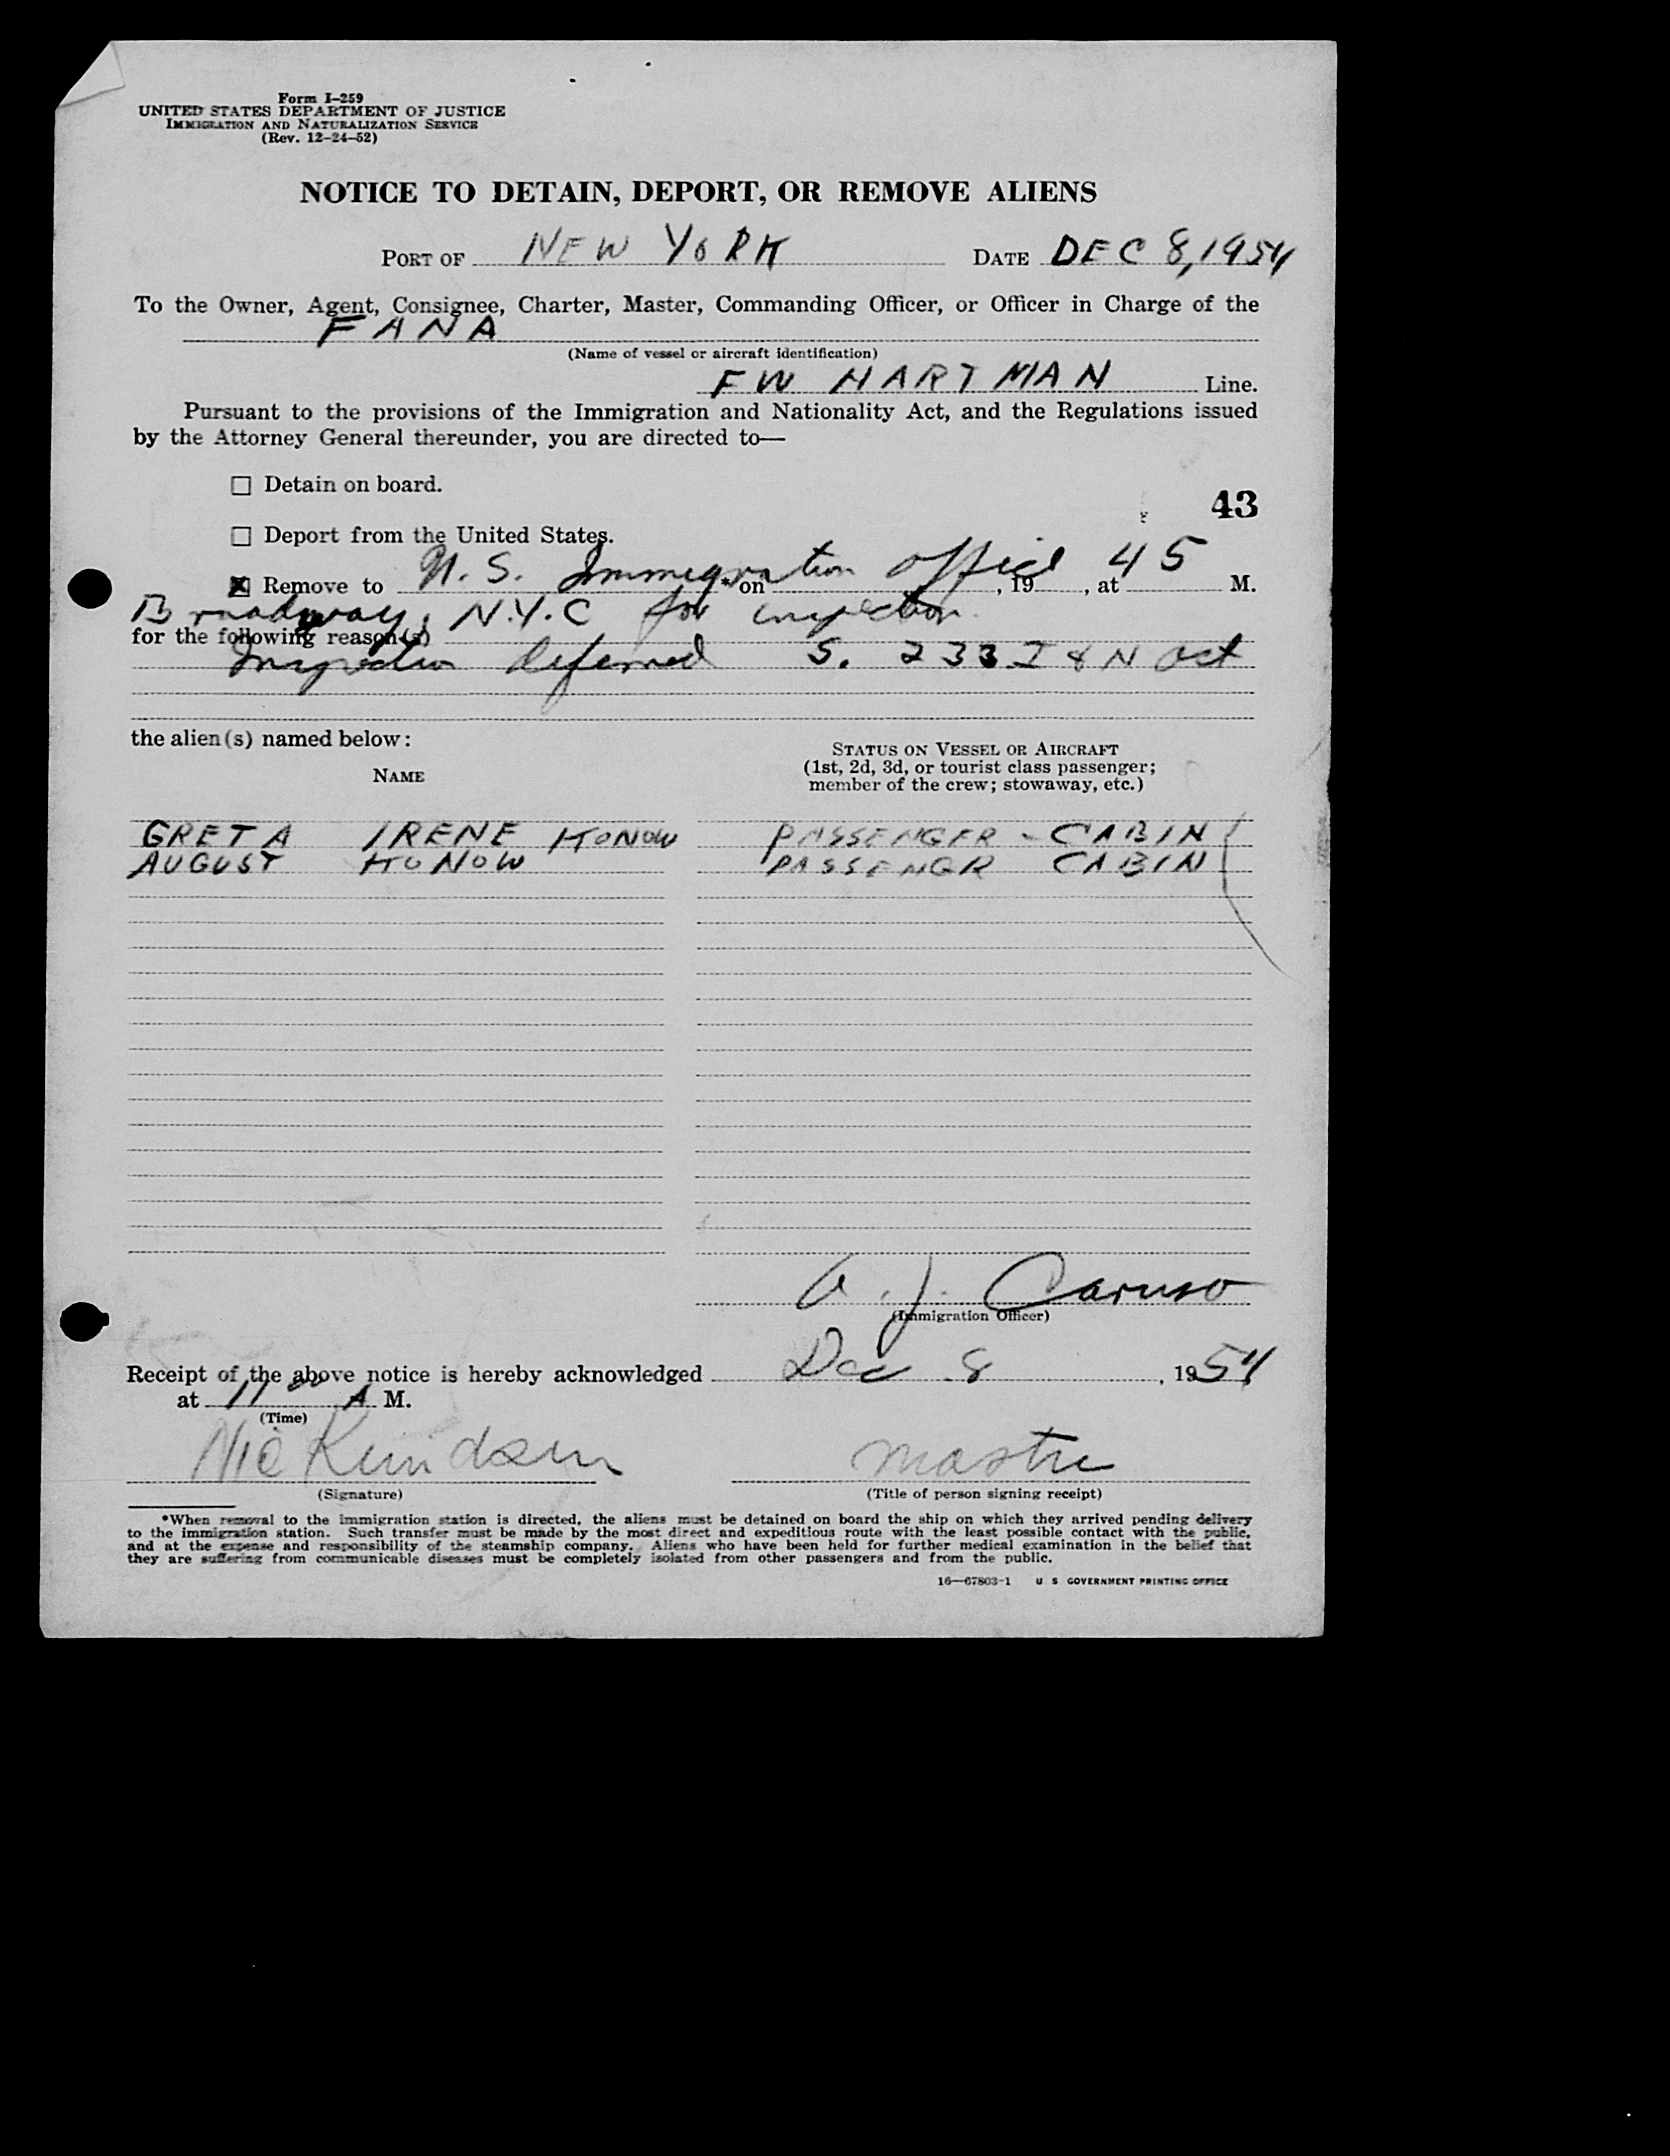 Form I-259
UNITED STATES DEPARTMENT OF JUSTICE
IMMIGRATION AND NATURALIZATION SERVICE
(Rev. 12-24-52)
NOTICE TO DETAIN, DEPORT, OR REMOVE ALIENS
PORT OF NEW YORK DATE DEC 8, 1954
To the Owner, Agent, Consignee, Charter, Master, Commanding Officer, or Officer in Charge of the
FANA
(Name of vessel or aircraft identification)
FW HARTMAN Line.
Pursuant to the provisions of the Immigration and Nationality Act, and the Regulations issued
by the Attorney General thereunder, you are directed to—
☐ Detain on board.
43
☐ Deport from the United States.
☒ Remove to U.S. Immigration Office 45 * on , 19 , at M.
Broadway, N.Y.C for inspection.
for the following reason(s)
Inspection Deferred S. 233 I & N Act
the alien(s) named below:
STATUS ON VESSEL OR AIRCRAFT
(1st, 2d, 3d, or tourist class passenger;
member of the crew; stowaway, etc.)
NAME
GRETA IRENE KONOW PASSENGER - CABIN
AUGUST KONOW PASSENGR CABIN
A. J. Caruso
(Immigration Officer)
Receipt of the above notice is hereby acknowledged Dec 8, 1954
at 11 00 A M.
(Time)
mastre
(Signature) (Title of person signing receipt)
*When removal to the immigration station is directed, the aliens must be detained on board the ship on which they arrived pending delivery
to the immigration station. Such transfer must be made by the most direct and expeditious route with the least possible contact with the public,
and at the expense and responsibility of the steamship company. Aliens who have been held for further medical examination in the belief that
they are suffering from communicable diseases must be completely isolated from other passengers and from the public.
16—67803-1 U. S. GOVERNMENT PRINTING OFFICE